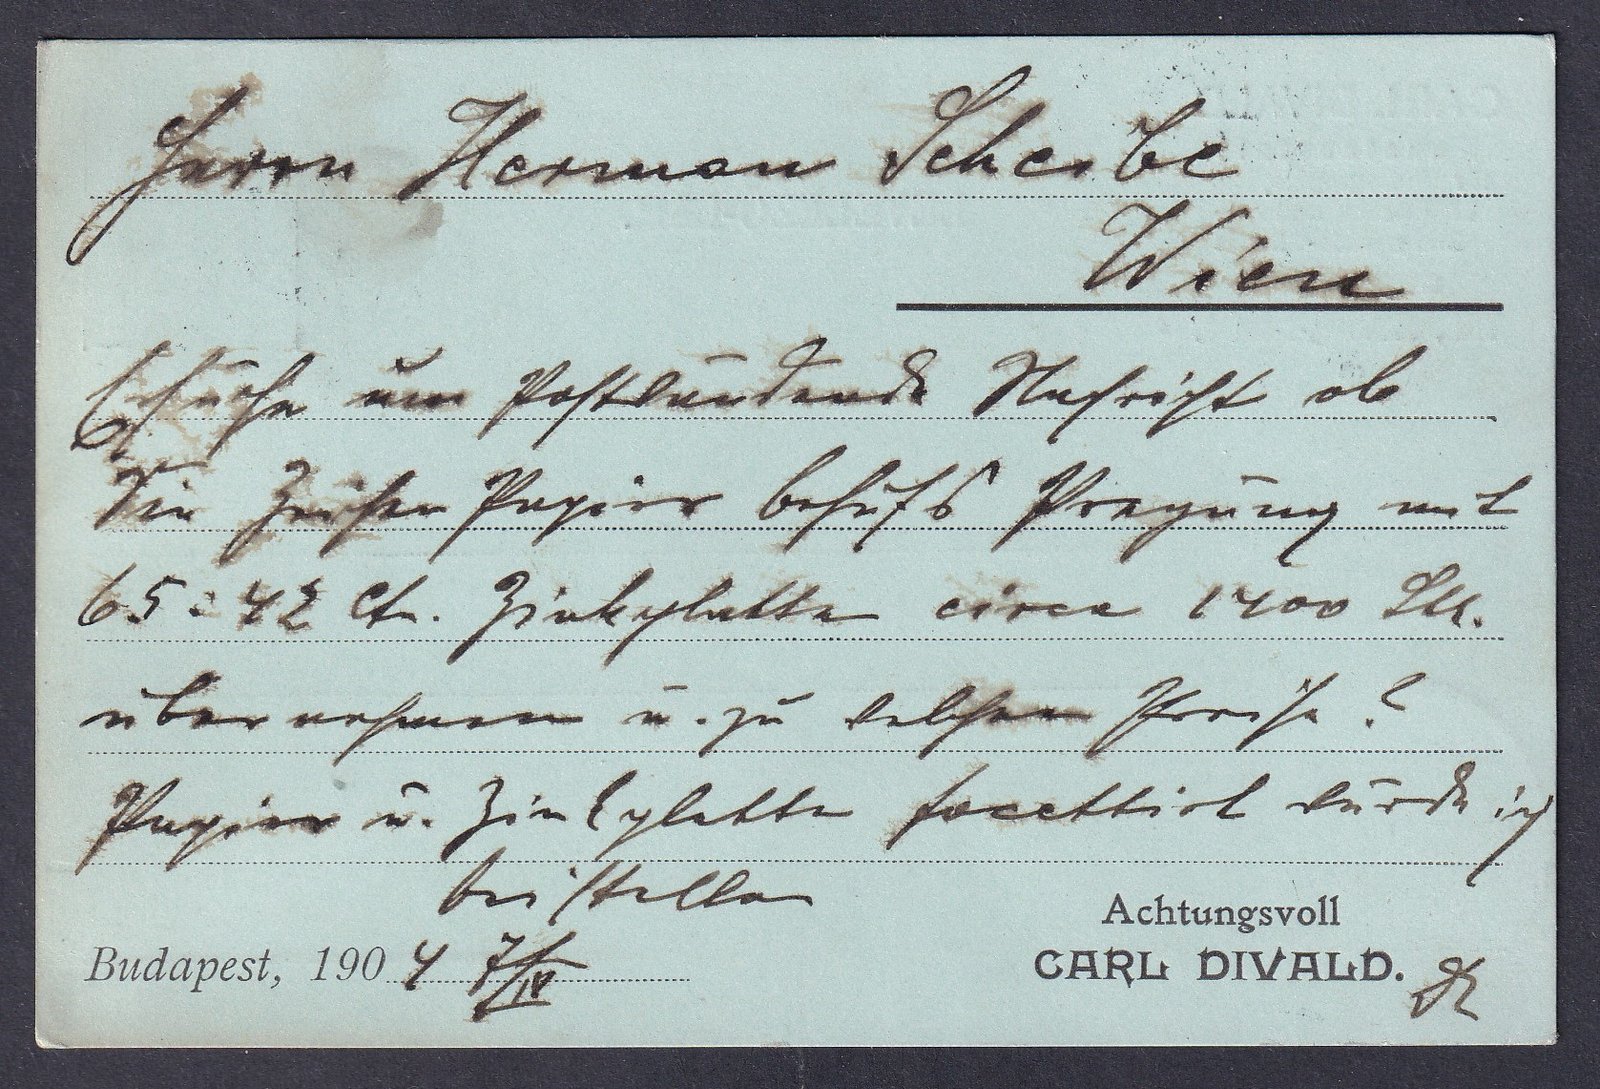 Herrn Herman Scheibe
Wien
Ersuche um Postwendende Nachricht ob
Sie Papier behufs Pragung mit
65:42 Ct. Zinkplatte circa 1400 Stk.
übernehmen u. zu welchem Preise?
Papier u. Zinkplatte facettirt würde ich
beistellen
Achtungsvoll
Budapest, 1904 7/IV CARL DIVALD.